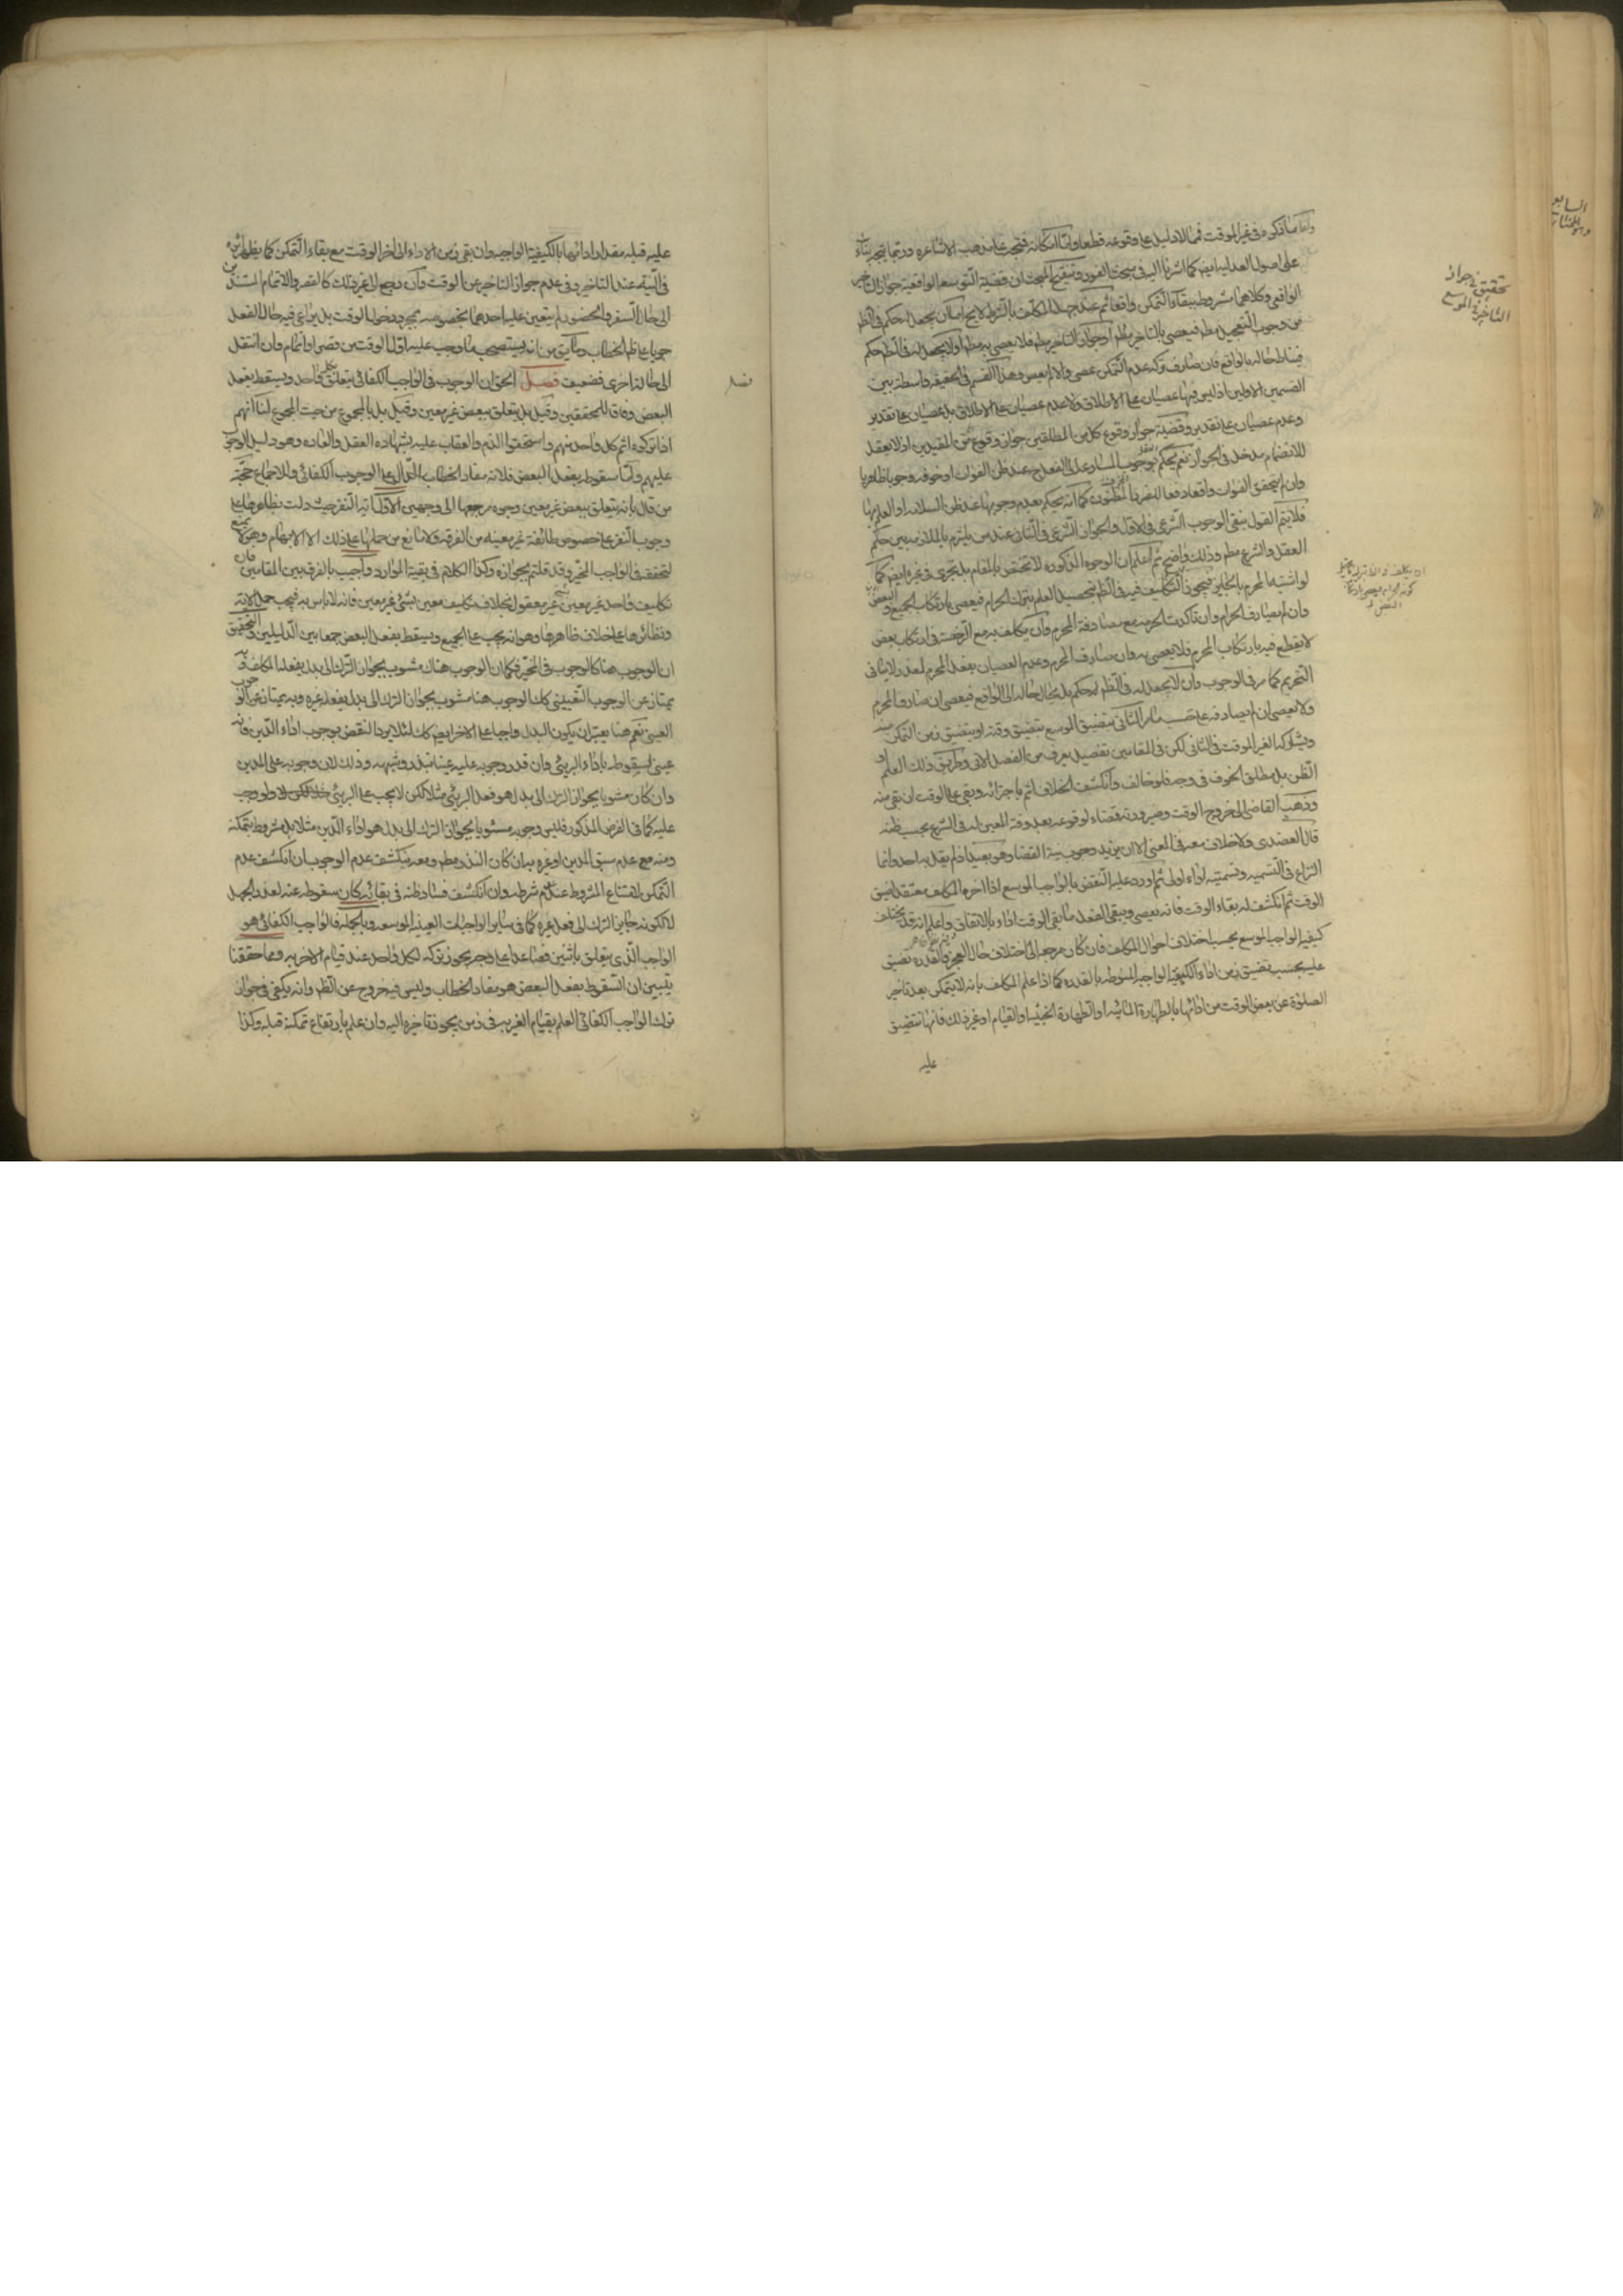 واما ما ذكروه في غير الموقت فمما لا دليل على وقوعه قطعا واما امكانه فتجه على مذهب الاشاعرة وربما يتجه بناء
على اصول العدلية ايضا كما اشرنا اليه في مبحث الفور وتنقيح المبحث ان قضية التوسعة الواقعية جواز التاخير
الواقعي وكلاهما مشروط ببقاء التمكن واقعا ثم عند جهل المكلف بالشرط لا يخ اما ان يجعل له حكم في الظ
من وجوب التعجيل مط فيعصي بالتاخير مط او جواز التاخير مط فلا يعصي به مط او لا يجعل له في الظ حكم
فيناط حاله بالواقع فان صادف تركه عدم التمكن عصى والا لم يعص وهذا القسم في الحقيقة واسطة بين
القسمين الاولين اذ ليس فيها عصيان على الاطلاق ولا عدم عصيان على الاطلاق بل عصيان على تقدير
وعدم عصيان على تقدير وقضية جواز وقوع كل من المطلقين جواز وقوع كل من المقيدين اذ لا يعقل
للانضمام مدخل في الجواز نعم يحكم العقل بوجوب المبادرة الى الفعل ح عند ظن الفوات او خوفه وجوبا ظاهريا
وان لم يتحقق الفوات واقعا دفعا للضرر المظنون كما انه يحكم بعدم وجوبها عند ظن السلامة او العلم بها
فلا يتم القول بنفي الوجوب الشرعي في الاول والجواز الشرعي في الثاني عند من يلتزم بالملازمة بين حكم
العقل والشرع مط وذلك واضح ثم اعلم ان الوجوه المذكورة لا تختص بالمقام بل تجري في غيره ايضا كما
لو اشتبه المحرم بالحليلة فيجوز التكليف فيه في الظ بتحصيل العلم بترك الحرام فيعصي بارتكاب الجميع والبعض
وان لم يصادف الحرام وان تاكدت الحرمة مع مصادفة المحرم وان يكلف به مع الرخصة في ارتكاب بعض
لا يقطع فيه بارتكاب المحرم فلا يعصي به وان صادف المحرم وعدم العصيان بفعل المحرم لعذر لا ينافي
التحريم كما مر في الوجوب وان لا يجعل له في الظ حكم بل يحال حاله الى الواقع فيعصي ان صادف المحرم
ولا يعصي ان لم يصادفه على حسب ما مر الثاني يتضيق الموسع بتضيق وقته او بتضيق زمن التمكن منه
ويشاركه الغير الموقت في الثاني لكن في المقامين تفصيل يعرف من الفصل الاتي وطريق ذلك العلم او
الظن بل مطلق الخوف في وجه فلو خالف وانكشف الخلاف اثم باجرائه وبقي على الوقت ان بقي منه
وذهب القاضي الى خروج الوقت وصيرورته قضاء لوقوعه بعد وقته المعين له في الشرع بحسب ظنه
قال العضدي ولا خلاف معه في المعنى الا ان يريد وجوب نية القضاء وهو بعيد اذ لم يقل به احد وانما
النزاع في التسمية وتسميته اداء اولى ثم اورد عليه النقض بالواجب الموسع اذا اخره المكلف معتقدا ضيق
الوقت ثم انكشف له بقاء الوقت فانه يعصي ويبقى الفعل ما بقي الوقت اداء بالاتفاق واعلم انه قد يختلف
كيفية الواجب الموسع بحسب اختلاف احوال المكلف فان كان مرجعه الى اختلاف حال العجز والقدرة تضيق
عليه بحسب تضيق زمن اداء الكيفية الواجبة المنوطة بالقدرة كما اذا علم المكلف بانه لا يتمكن بعد تاخير
الصلوة عن بعض الوقت من ادائها بالطهارة المائية او الطهارة الخبثية او القيام او غير ذلك فانها تتضيق
عليه
تحقيق في جواز
التاخير في الموسع
عليه قبله مقدار ادائها بالكيفية الواجبة وان بقي زمن الاداء الى اخر الوقت مع بقاء التمكن كما يظهر اثره
في النية عند التاخير وفي عدم جواز التاخير عن الوقت وان رجع الى غير ذلك كالقصر والاتمام المستندين
الى حال السفر والحضور لم يتعين عليه احدهما بخصوصه بمجرد دخول الوقت بل يراعى فيه حال الفعل
جريا على ظ الخطاب وما يق من انه يستصحب ما وجب عليه اول الوقت من قصر او اتمام وان انتقل
الى حالة اخرى فضعيف فصل الحق ان الوجوب في الواجب الكفائي يتعلق بكل واحد ويسقط بفعل
البعض وفاقا للمحققين وقيل بل يتعلق ببعض غير معين وقيل بل بالمجموع من حيث المجموع لنا انهم
اذا تركوه اثم كل واحد منهم واستحقوا الذم والعقاب عليه بشهادة العقل والعادة وهو دليل الوجوب
عليهم واما سقوطه بفعل البعض فلانه مفاد الخطاب الدال على الوجوب الكفائي وللاجماع حجة
من قال بانه يتعلق ببعض غير معين وجوه مرجعها الى وجهين الاول اية النفر حيث دلت بظاهرها على
وجوب النفر على خصوص طائفة غير معينة من الفرقة ولا مانع من حملها على ذلك الا الابهام وهو لا يمنع
لتحققه في الواجب المخير وقد قلتم بجوازه وكذا الكلام في بقية الموارد واجيب بالفرق بين المقامين فان
تكليف واحد غير معين غير معقول بخلاف تكليف معين بشيء غير معين فانه لا باس به فيجب حمل الاية
ونظائرها على خلاف ظاهرها وهو انه يجب على الجميع ويسقط بفعل البعض جمعا بين الدليلين والتحقيق
ان الوجوب هنا كالوجوب في المخير فكما ان الوجوب هناك مشوب بجواز الترك الى بدل يفعله المكلف وبه
يمتاز عن الوجوب التعييني كك الوجوب هنا مشوب بجواز الترك الى بدل يفعله غيره وبه يمتاز عن الوجوب
العيني نعم هنا يعتبر ان يكون البدل واجبا على الاخر ايضا كك لئلا يرد النقض بوجوب اداء الدين فانه
عيني لسقوطه باداء البريء وان قدر وجوبه عليه عينا بنذر وشبهه وذلك لان وجوبه على المدين
وان كان مشوبا بجواز الترك الى بدل هو فعل البريء مثلا لكن لا يجب على البريء ولو وجب
عليه كما في الفرض المذكور فليس وجوبه مشوبا بجواز الترك الى بدل هو اداء الدين مثلا بل مشروط بتمكنه
ومنه مع عدم سبق المدين او غيره به ان كان النذر مط ومعه ينكشف عدم الوجوب ان انكشف عدم
التمكن لامتناع المشروط عند عدم شرطه وان انكشف فساد ظنه في بقائه كان سقوطه عنه لعذر الجهل
لا لكونه جائز الترك الى فعل غيره كما في سائر الواجبات العينية الموسعة وبالجملة فالواجب الكفائي هو
الواجب الذي يتعلق باثنين فصاعدا على وجه يجوز تركه لكل واحد عند قيام الاخر به ومما حققنا
يتبين ان السقوط بفعل البعض هو مفاد الخطاب وليس فيه خروج عن الظ وانه يكفي في جواز
ترك الواجب الكفائي العلم بقيام الغير به في زمن يجوز تاخيره اليه وان علم بارتفاع تمكنه قبله وكذا
فصل